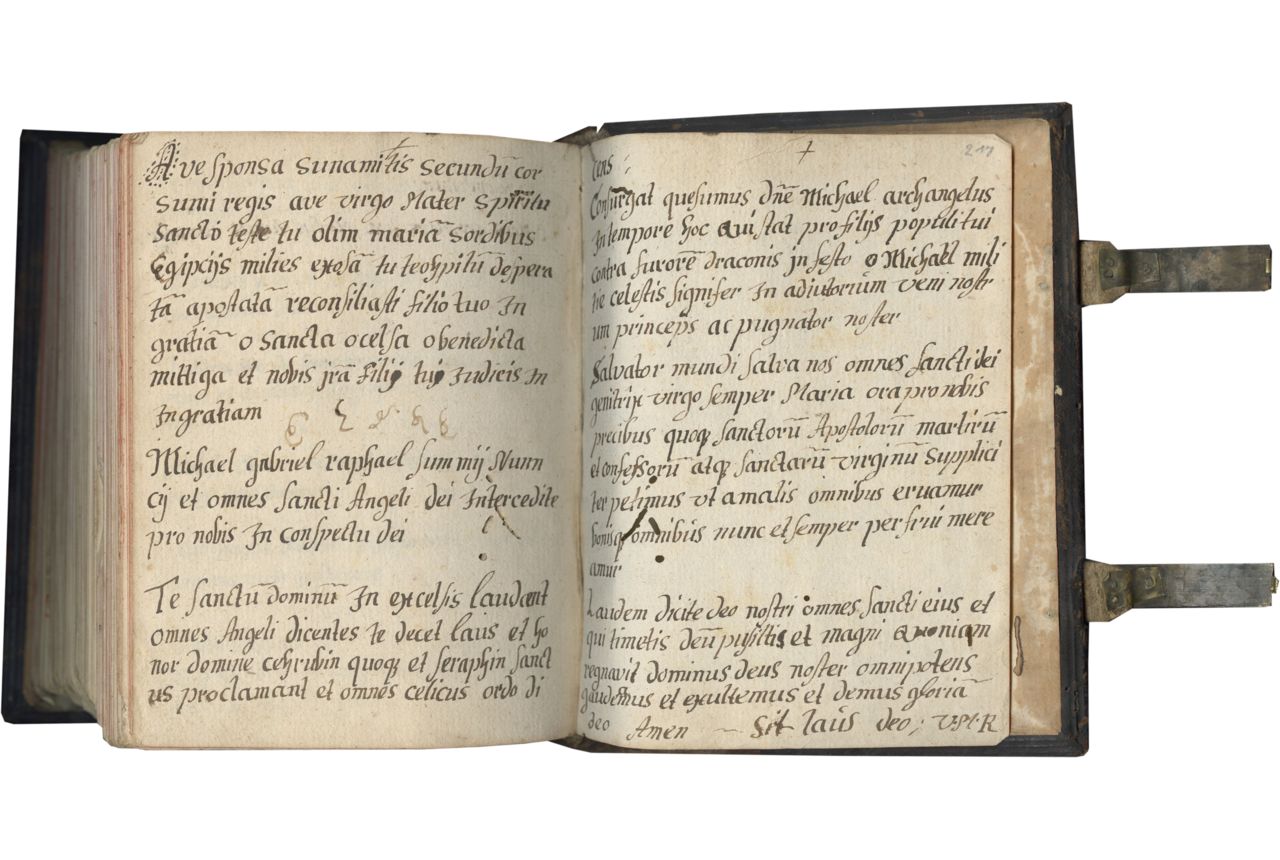 Ave sponsa sunamitis secundū cor
sumi regis ave virgo Mater spiritu
sancto teste tu olim mariā sordibus
Egipcijs milies exosā tu teohpilū despera
tā apostatā reconsiliasti filio tuo In
gratiā o sancta o celsa o benedicta
mittiga et nobis jrā filij tui Iudicis In
Ingratiam
Michael gabriel raphael summij Nunn
cij et omnes sancti Angeli dei Intercedite
pro nobis In conspectu dei
Te sanctū dominū In excelsis laudant
omnes Angeli dicentes te decet laus et ho
nor domine cehrubin quoqȝ et seraphin sanct
us proclamant et omnes celicus ordo di
cens
217
Consurgat quesumus dn̄e Michael archangelus
In tempore hoc qui stat pro filijs populi tui
contra furorē draconis jnfesto o Michael mili
tie celestis signifer In adiutoriūm veni nostr
um princeps ac pugnator noster
Salvator mundi salva nos omnes sancti dei
genitrix virgo semper Maria ora pro nobis
precibus quoqȝ sanctorū Apostolorū martirū
et confessorū atqȝ sanctarū virginū supplici
ter petimus vt a malis omnibus eruamur
bonisqȝ omnibus nunc et semper perfrui mere
amur
Laudem dicite deo nostri omnes sancti eius et
qui timetis deū pusillis et magni quoniam
regnavit dominus deus noster omnipotens
gaudemus et exultemus et demus gloriā
deo Amen Sit laus deo;